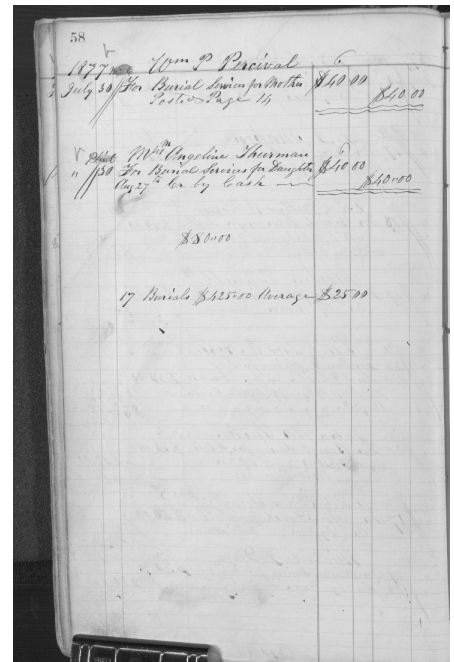 58
1877 Wm P Percival
July 30 For Burial Services for Mother $40 00
Posted Page 14 $40 00
Mrs Angeline Thurman
" 30 For Burial Services for Daughter $40 00
Aug 27th Cr by Cash $40 00
$80 00
17 Burials $425 00 Average $25 00